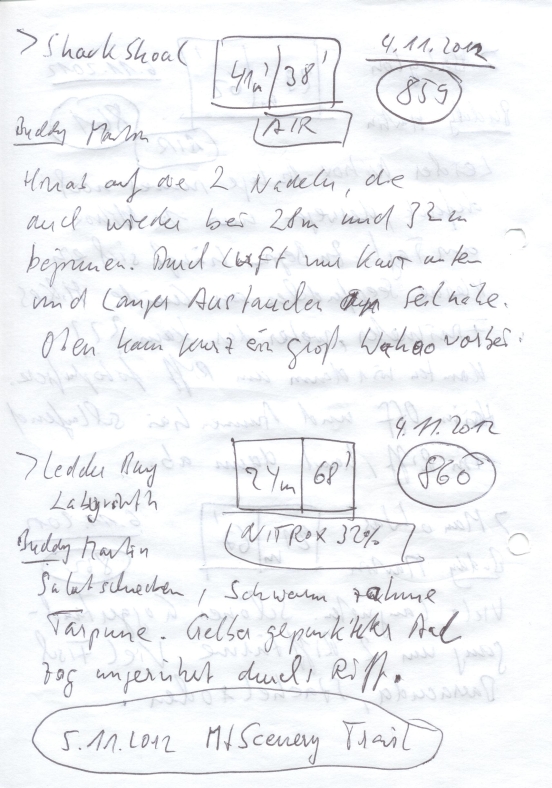 > Shark Shoal 41m 38' 4.11.2012
859
Buddy Martin AIR
auf die 2 Nadeln, die
auch wieder bei 28m und 32m
beginnen. Durch Luft nur kurz unten
und langes Austauchen Seilnähe.
Oben kam kurz ein groß Wahoo vorbei.
4.11.2012
> Ledder Bay 24m 68' 860
Labyrinth
NITROX 32%
Buddy Martin
, Schwarm zahme
Tarpune. Gelber gepunkteter Aal
zog ungerührt durchs Riff.
5.11.2012 Mt Scenery Trail